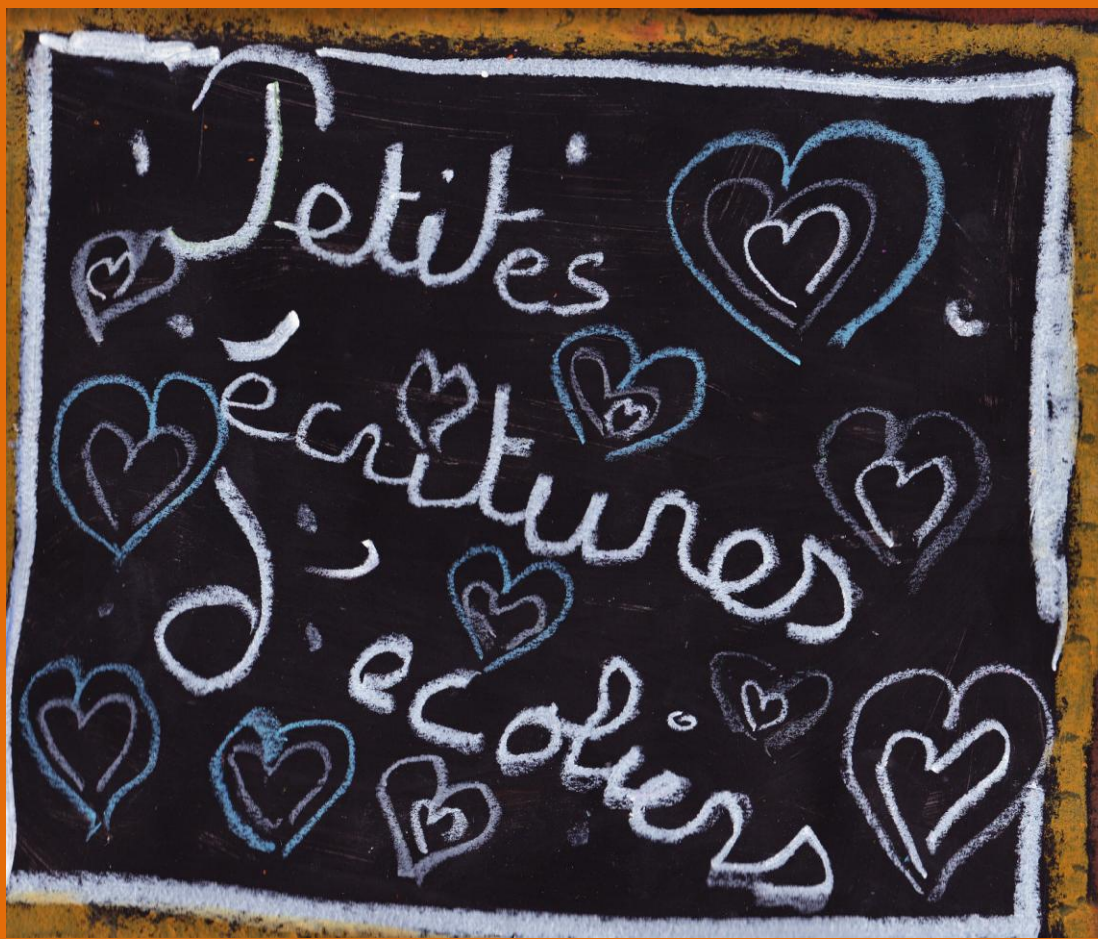 Petites
écritures
d'ecoliers